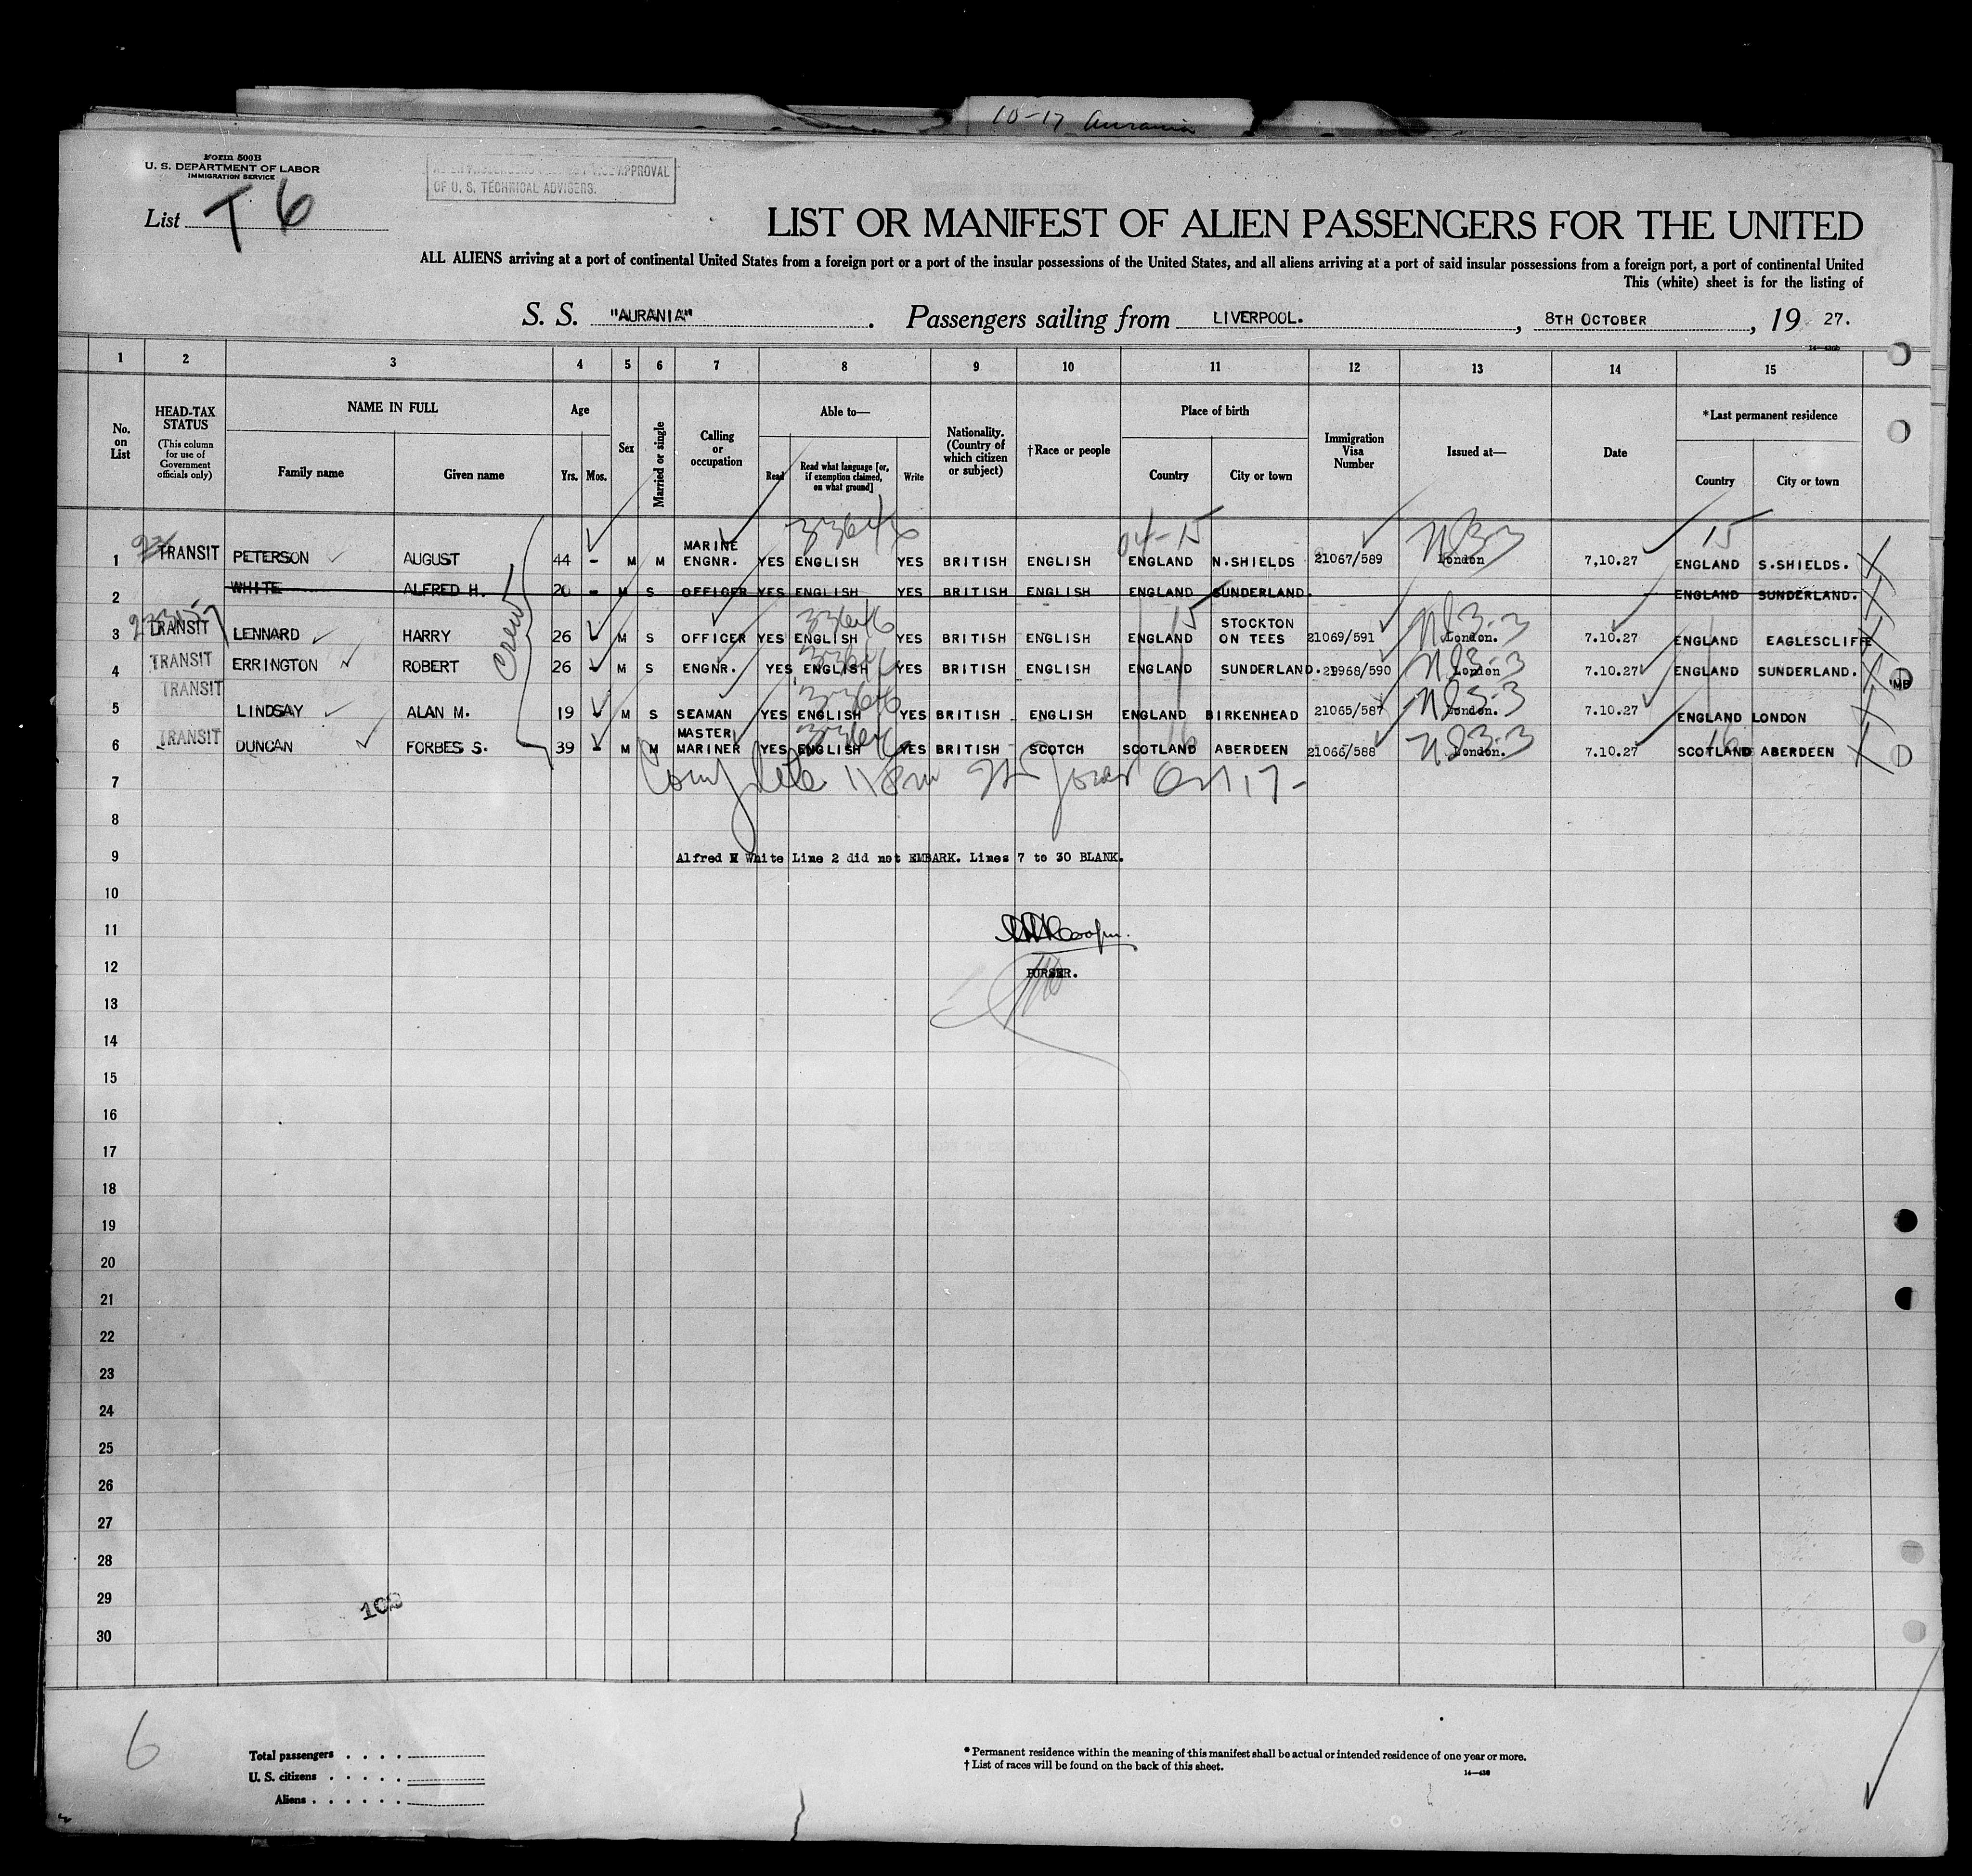 10-17 Aurania
Form 500B
U. S. DEPARTMENT OF LABOR
IMMIGRATION SERVICE
APPROVAL
OF U. S. TECHNICAL ADVISERS.
List T 6
LIST OR MANIFEST OF ALIEN PASSENGERS FOR THE UNITED
ALL ALIENS arriving at a port of continental United States from a foreign port or a port of the insular possessions of the United States, and all aliens arriving at a port of said insular possessions from a foreign port, a port of continental United
This (white) sheet is for the listing of
S. S. "AURANIA" . Passengers sailing from LIVERPOOL. , 8TH OCTOBER , 19 27.
1 2 3 4 5 6 7 8 9 10 11 12 13 14 15
No. on List
HEAD-TAX STATUS (This column for use of Government officials only)
NAME IN FULL
Family name Given name
Age
Yrs. Mos.
Sex
Married or single
Calling or occupation
Able to—
Read Read what language [or, if exemption claimed, on what ground] Write
Nationality. (Country of which citizen or subject)
†Race or people
Place of birth
Country City or town
Immigration Visa Number
Issued at—
Date
*Last permanent residence
Country City or town
1 TRANSIT PETERSON AUGUST 44 - M M MARINE ENGNR. YES ENGLISH YES BRITISH ENGLISH ENGLAND N.SHIELDS 21067/589 London 7,10.27 ENGLAND S.SHIELDS.
2 WHITE ALFRED H. 20 - M S OFFICER YES ENGLISH YES BRITISH ENGLISH ENGLAND SUNDERLAND. ENGLAND SUNDERLAND.
3 TRANSIT LENNARD HARRY 26 - M S OFFICER YES ENGLISH YES BRITISH ENGLISH ENGLAND STOCKTON ON TEES 21069/591 London. 7.10.27 ENGLAND EAGLESCLIFFE
4 TRANSIT ERRINGTON ROBERT 26 - M S ENGNR. YES ENGLISH YES BRITISH ENGLISH ENGLAND SUNDERLAND. London 7.10.27 ENGLAND SUNDERLAND.
5 TRANSIT LINDSAY ALAN M. 19 - M S SEAMAN YES ENGLISH YES BRITISH ENGLISH ENGLAND BIRKENHEAD 21065/587 London. 7.10.27 ENGLAND LONDON
6 TRANSIT DUNCAN FORBES S. 39 - M M MASTER MARINER YES ENGLISH YES BRITISH SCOTCH SCOTLAND ABERDEEN 21066/588 London. 7.10.27 SCOTLAND ABERDEEN
Crew
7 Complete
8
9 Alfred H White Line 2 did not EMBARK. Lines 7 to 30 BLANK.
10
11
12 PURSER.
13
14
15
16
17
18
19
20
21
22
23
24
25
26
27
28
29
30
6
Total passengers . . . .
U. S. citizens . . . . .
Aliens . . . . . .
* Permanent residence within the meaning of this manifest shall be actual or intended residence of one year or more.
† List of races will be found on the back of this sheet.